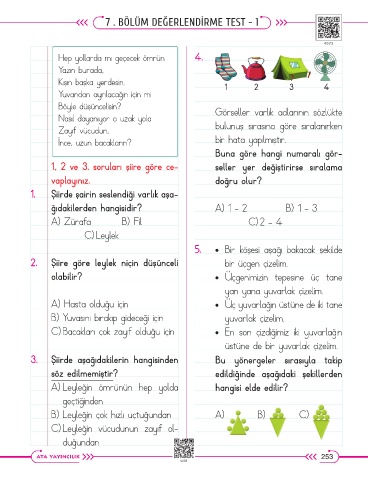 7 . BÖLÜM DEĞERLENDİRME TEST - 1
Hep yollarda mı geçecek ömrün
Yazın burada,
Kışın başka yerdesin.
Yuvandan ayrılacağın için mi
Böyle düşüncelisin?
Nasıl dayanıyor o uzak yola
Zayıf vücudun,
İnce, uzun bacakların?
1, 2 ve 3. soruları şiire göre ce-
vaplayınız.
1. Şiirde şairin seslendiği varlık aşa-
ğıdakilerden hangisidir?
A) Zürafa B) Fil
C) Leylek
2. Şiire göre leylek niçin düşünceli
olabilir?
A) Hasta olduğu için
B) Yuvasını bırakıp gideceği için
C) Bacakları çok zayıf olduğu için
3. Şiirde aşağıdakilerin hangisinden
söz edilmemiştir?
A) Leyleğin ömrünün hep yolda
geçtiğinden
B) Leyleğin çok hızlı uçtuğundan
C) Leyleğin vücudunun zayıf ol-
duğundan
4.
1 2 3 4
Görseller varlık adlarının sözlükte
bulunuş sırasına göre sıralanırken
bir hata yapılmıştır.
Buna göre hangi numaralı gör-
seller yer değiştirirse sıralama
doğru olur?
A) 1 - 2 B) 1 - 3
C) 2 - 4
5. • Bir köşesi aşağı bakacak şekilde
bir üçgen çizelim.
• Üçgenimizin tepesine üç tane
yan yana yuvarlak çizelim.
• Üç yuvarlağın üstüne de iki tane
yuvarlak çizelim.
• En son çizdiğimiz iki yuvarlağın
üstüne de bir yuvarlak çizelim.
Bu yönergeler sırasıyla takip
edildiğinde aşağıdaki şekillerden
hangisi elde edilir?
A) B) C)
ATA YAYINCILIK
253